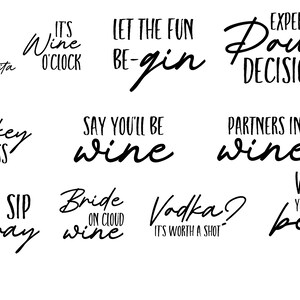 IT'S
Wine
O'CLOCK
LET THE FUN
BE-gin
DECISION
SAY YOU'LL BE
wine
PARTNERS IN
wine
SIP
Bride
ON CLOUD
wine
Vodka?
IT'S WORTH A SHOT